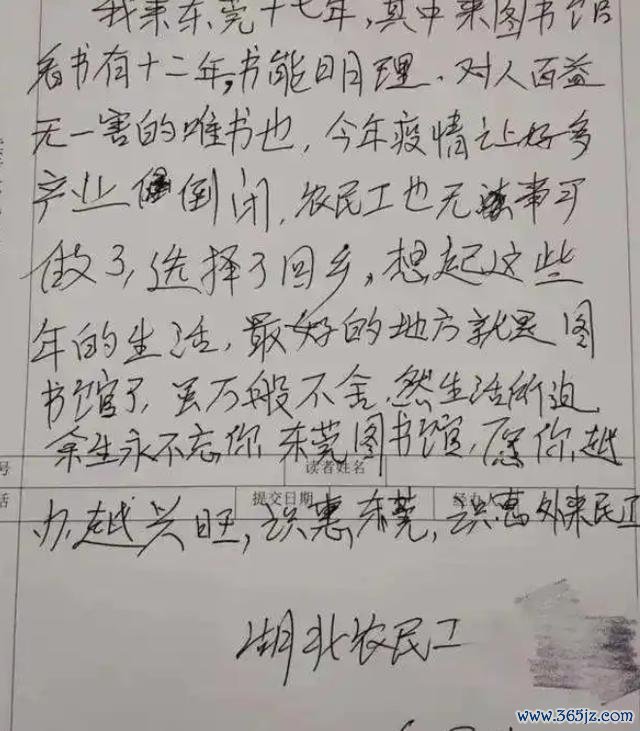 我来东莞十七年,其中来图书馆
看书有十二年,书能明理.对人百益
无一害的唯书也,今年疫情让好多
产业倒闭,农民工也无事可
做了,选择了回乡,想起这些
年的生活,最好的地方就是图
书馆了,虽万般不舍,然生活所迫
余生永不忘你,东莞图书馆,愿你越
号 读者姓名
办越兴旺,识惠东莞,识惠外来民工
话 提交日期 经办
湖北农民工
www.365jz.com